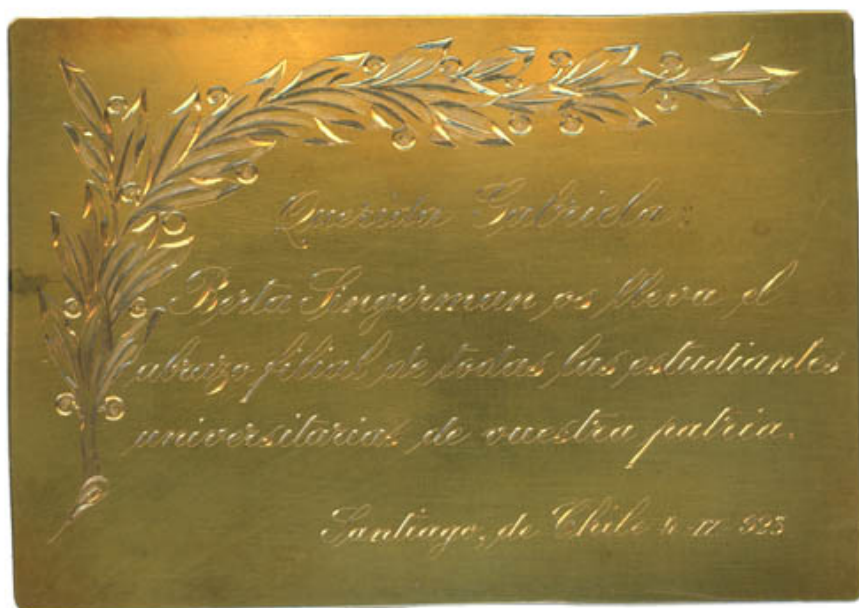 Querida Gabriela:
Berta Singerman os lleva el
abrazo filial de todas las estudiantes
universitarias de vuestra patria.
Santiago, de Chile 923